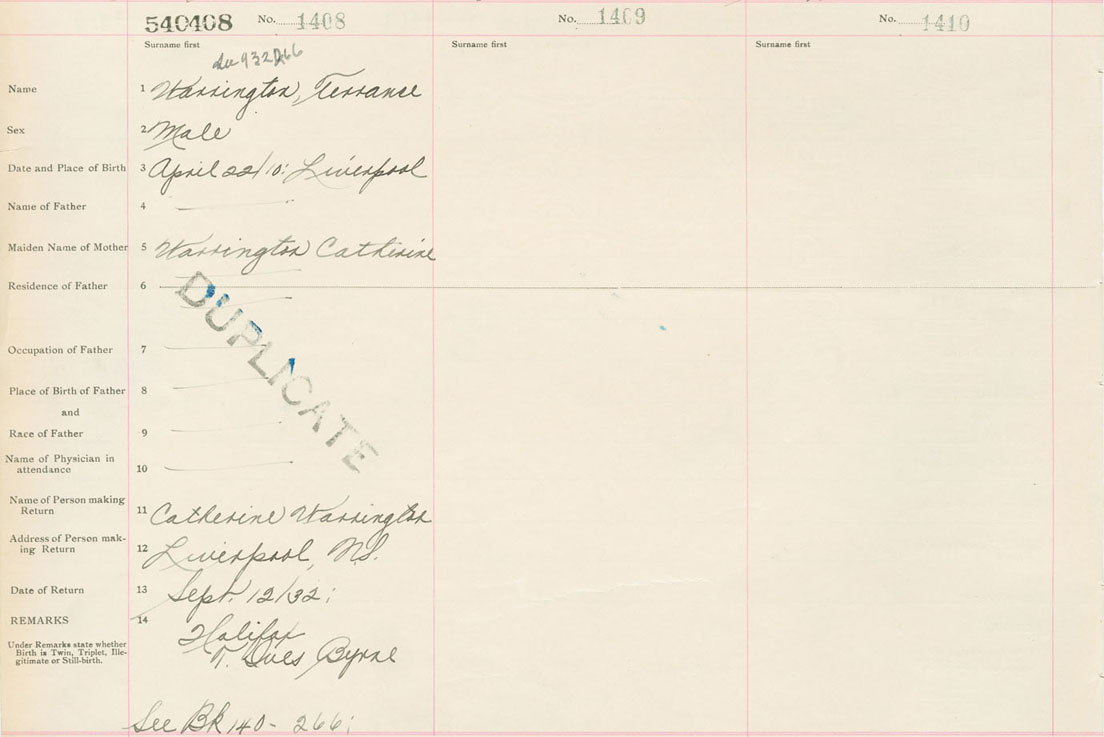 540408 No. 1408
No. 1409
No. 1410
Surname first
Surname first
Surname first
See 932266
Name 1 Warrington, Terrance
Sex 2 Male
Date and Place of Birth 3 April 22/10: Liverpool
Name of Father 4
Maiden Name of Mother 5 Warrington Catherine
Residence of Father 6
DUPLICATE
Occupation of Father 7
Place of Birth of Father 8
and
Race of Father 9
Name of Physician in
attendance 10
Name of Person making
Return 11 Catherine Warrington
Address of Person mak-
ing Return 12 Liverpool, N.S.
Date of Return 13 Sept. 12/32;
REMARKS 14
Halifax
Under Remarks state whether
Birth is Twin, Triplet, Ille-
gitimate or Still-birth.
Byrne
See Bk 140 - 266;